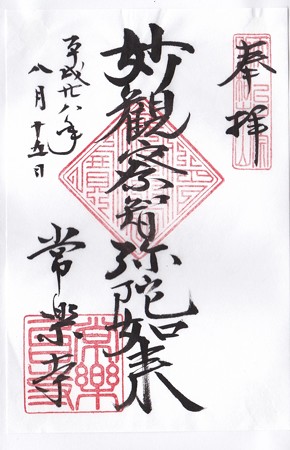 奉拝
妙観察智弥陀如来
常楽寺
平成廿八年
八月十五日